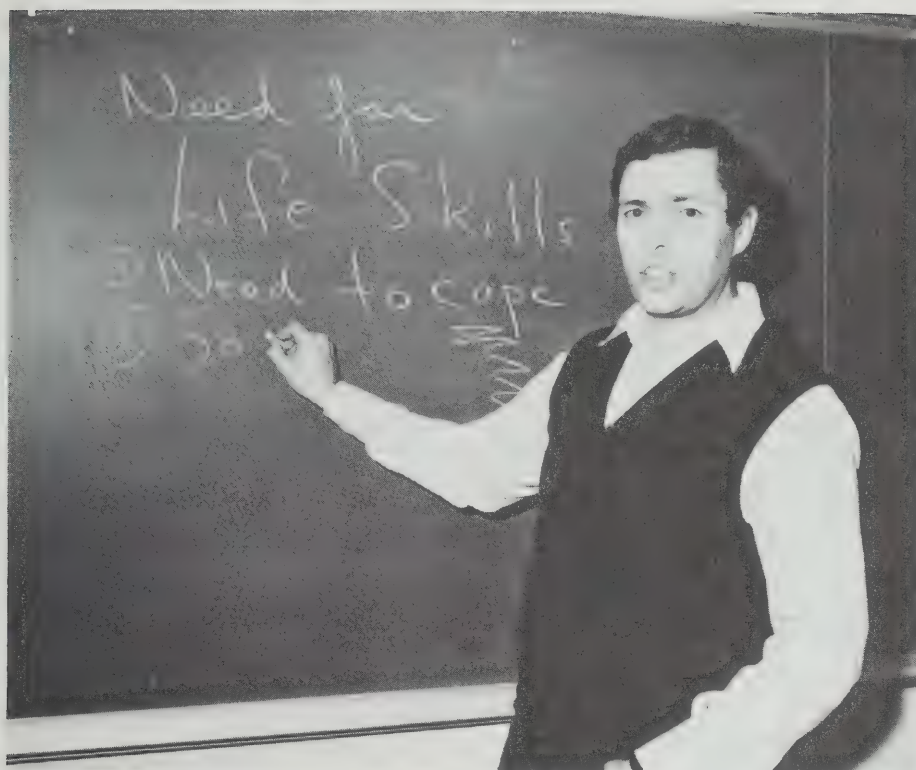 Need for
Life Skills
Need to cope